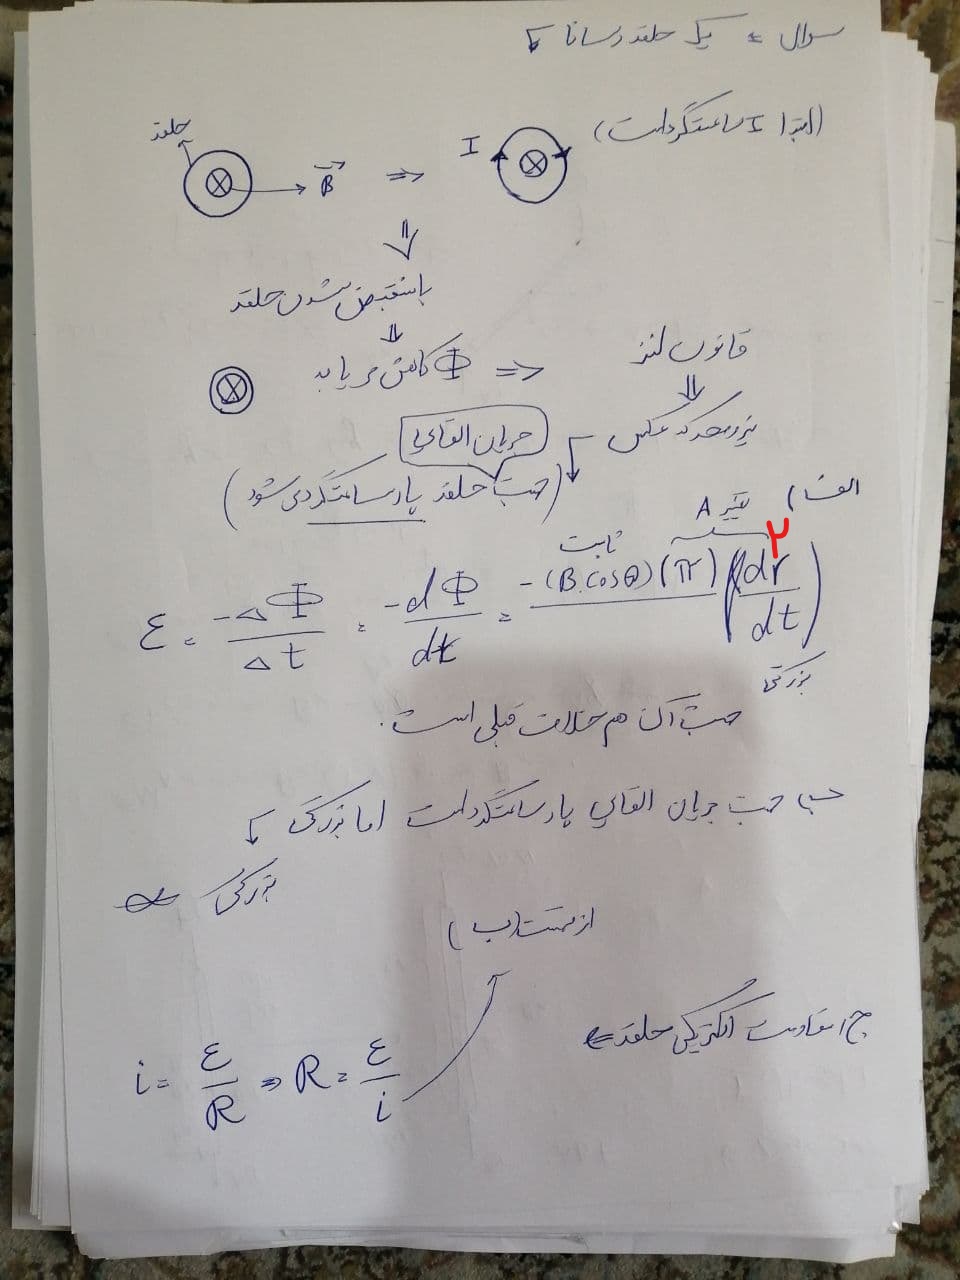 سوال = یک حلقه رسانا
(ابتدا I ساعتگرد است)
I
حلقه
B
با منقبض شدن حلقه
Φ کاهش می یابد
قانون لنز
جریان القایی
(جهت حلقه پادساعتگرد می شود)
الف)
تغییر A
ثابت
ε = -ΔΦ/Δt = -dΦ/dt = -(B.cosθ)(π)(dr²/dt)
بزرگی
جهت آن هم خلاف قبلی است.
ب) جهت جریان القایی پادساعتگرد است اما بزرگی
بزرگی
از قسمت (ب)
ج) مقاومت الکتریکی حلقه
i = ε/R ⇒ R = ε/i